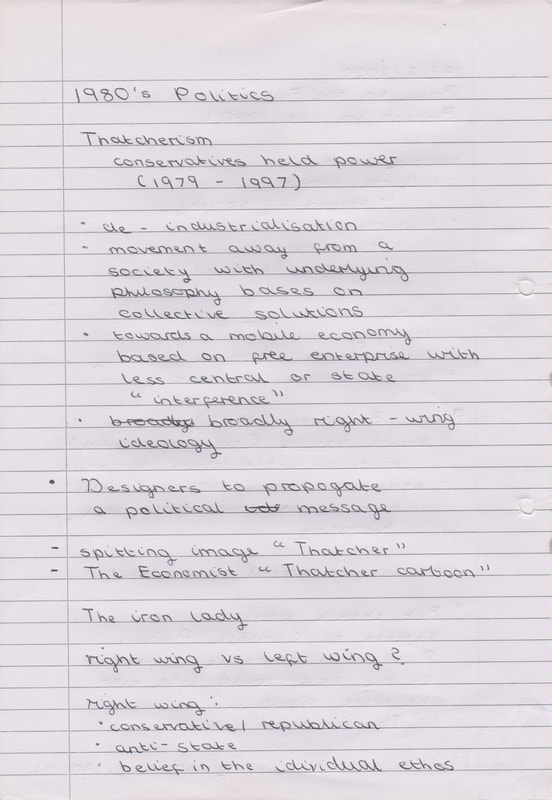 1980's Politics
Thatcherism
conservatives held power
(1979 - 1997)
• de - industrialisation
• movement away from a
society with underlying
philosophy bases on
collective solutions
• towards a mobile economy
based on free enterprise with
less central or state
"interference"
• broadly broadly right - wing
ideology
• Designers to propogate
a political message
- spitting image "Thatcher"
- The Economist "Thatcher cartoon"
The iron lady
right wing vs left wing?
right wing:
• conservative / republican
• anti-state
• belief in the idividual ethos